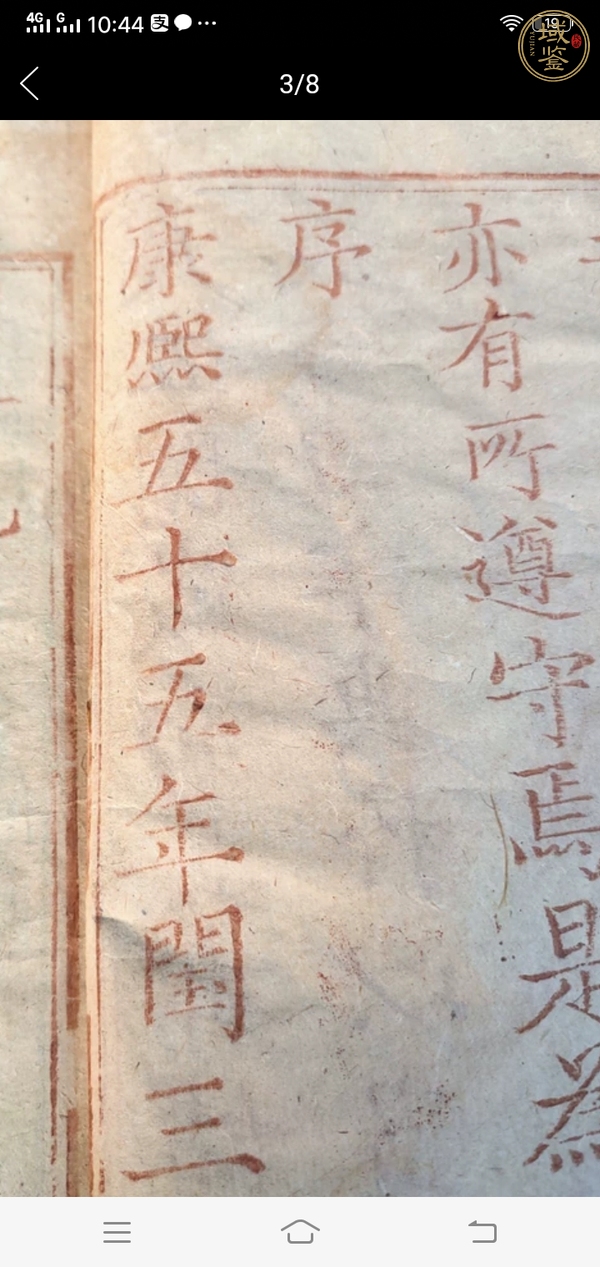 4G G 10:44 支 ··· 19
域鉴
YUJIAN
3/8
亦有所遵守焉是為
序
康熙五十五年閏三